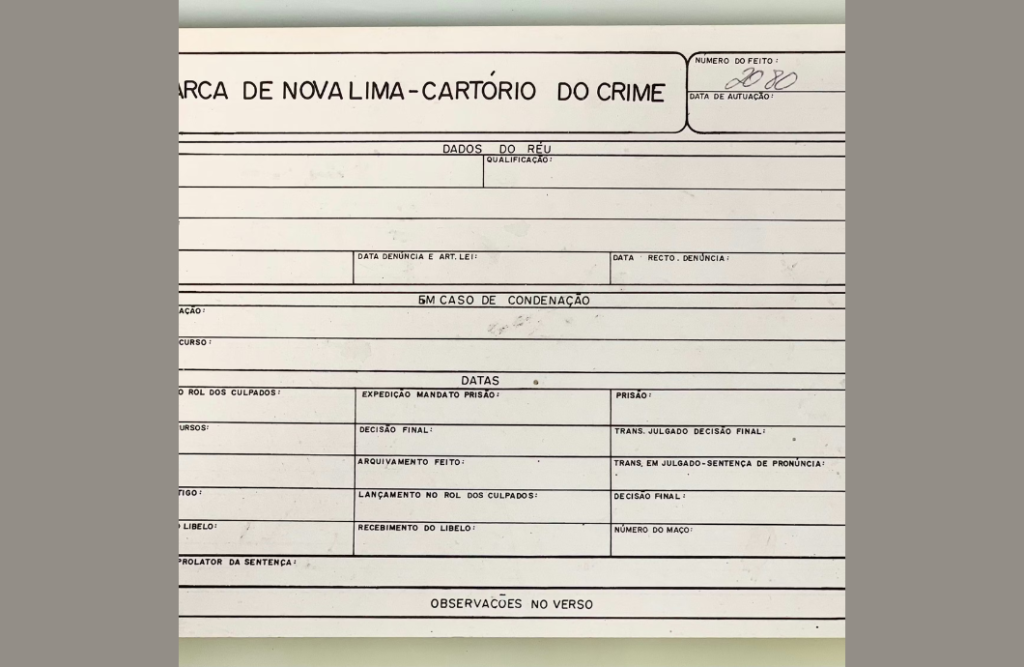 ARCA DE NOVA LIMA-CARTÓRIO DO CRIME
NÚMERO DO FEITO:
2080
DATA DE AUTUAÇÃO:
DADOS DO RÉU
QUALIFICAÇÃO:
DATA DENÚNCIA E ART. LEI:
DATA RECTO. DENÚNCIA:
EM CASO DE CONDENAÇÃO
AÇÃO:
CURSO:
DATAS
O ROL DOS CULPADOS:
EXPEDIÇÃO MANDATO PRISÃO:
PRISÃO:
URSOS:
DECISÃO FINAL:
TRANS. JULGADO DECISÃO FINAL:
ARQUIVAMENTO FEITO:
TRANS. EM JULGADO-SENTENÇA DE PRONÚNCIA:
TIGO:
LANÇAMENTO NO ROL DOS CULPADOS:
DECISÃO FINAL:
O LIBELO:
RECEBIMENTO DO LIBELO:
NÚMERO DO MAÇO:
PROLATOR DA SENTENÇA:
OBSERVACÕES NO VERSO